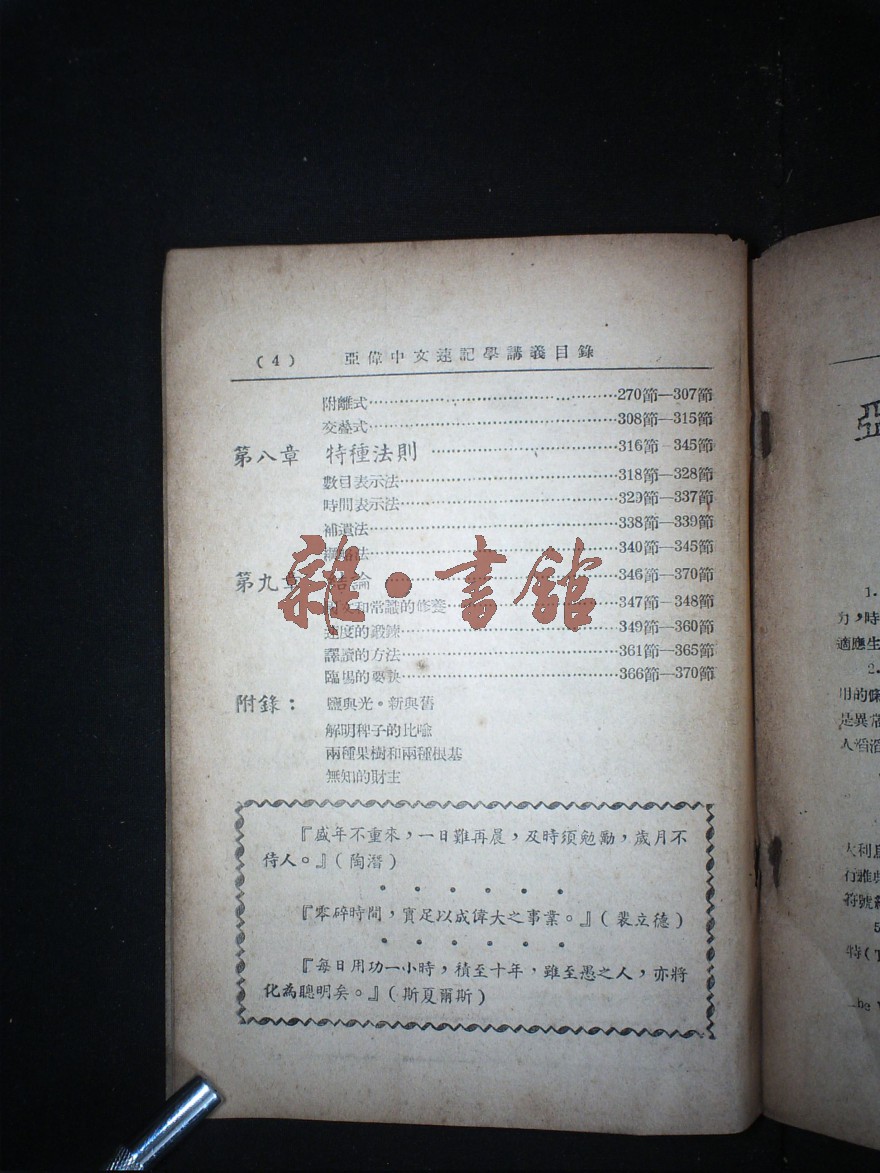 (4) 亞偉中文速記學講義目錄
附離式……270節—307節
交疊式……308節—315節
第八章 特種法則……316節—345節
數目表示法……318節—328節
時間表示法……329節—337節
補遺法……338節—339節
略法……340節—345節
第九章 結論……346節—370節
和常識的修養……347節—348節
速度的鍛鍊……349節—360節
譯讀的方法……361節—365節
臨場的要訣……366節—370節
附錄： 鹽與光・新與舊
解明稗子的比喻
兩種果樹和兩種根基
無知的財主
『盛年不重來，一日難再晨，及時須勉勵，歲月不
待人。』(陶潛)
『零碎時間，實足以成偉大之事業。』(裴立德)
『每日用功一小時，積至十年，雖至愚之人，亦將
化為聰明矣。』(斯夏爾斯)
雜・書館
亞
1.
力，時
適應生
2.
用的
是異常
人
大利
行
符號
5
特(
he